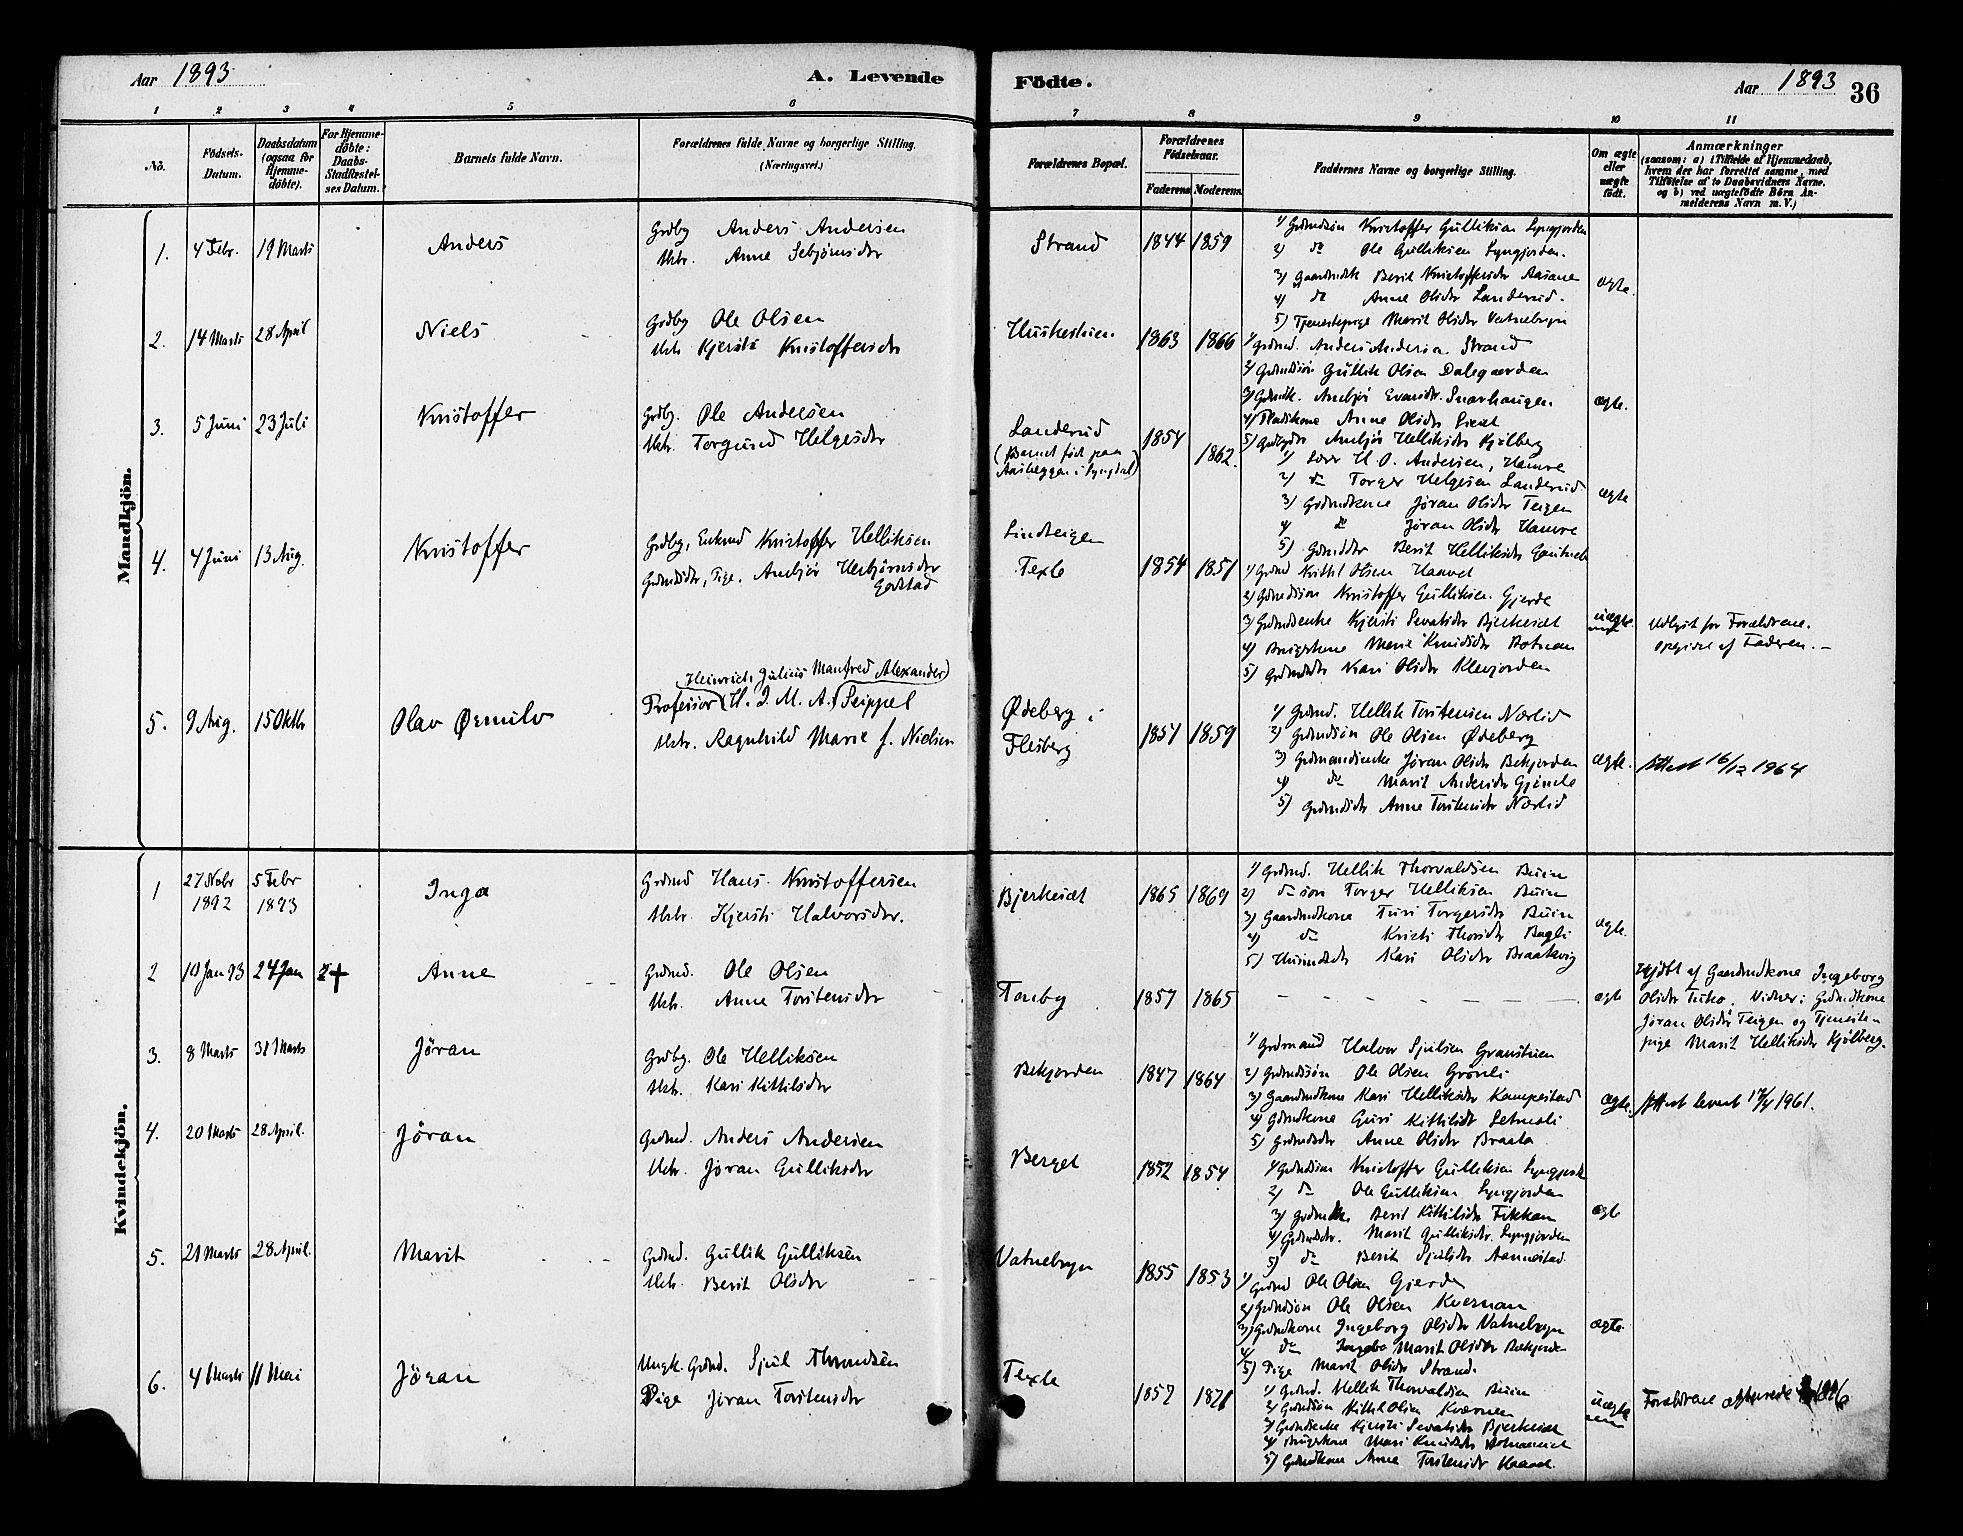 Aar 1893
A. Levende
Födte.
Aar 1893
36
1 2 3 4 5 6
7 8 9 10 11
No.
Födsels-Datum.
Daabsdatum (ogsaa for Hjemme-döbte).
For Hjemme-döbte: Daabs-Stadfæstel-ses Datum.
Barnets fulde Navn.
Forældrenes fulde Navne og borgerlige Stilling.
(Næringsvei.)
Forældrenes Bopæl.
Forældrenes Födselsaar.
Faderens Moderens
Faddernes Navne og borgerlige Stilling.
Om ægte eller uægte födt.
Anmærkninger
(saasom: a) i Tilfælde af Hjemmedaab,
hvem der har forrettet samme, med
Tilföielse af to Daabsvidners Navne,
og b) ved uægtefödte Börn An-
melderens Navn m. V.)
Mandkjön.
1. 4 Febr. 19 Marts Anders
Grdbg Anders Andersen
Anne
Strand 1844 1859
1) Grdmdsön Kristoffer Gulliksen Lyngjorden
2) do Ole Gulliksen Lyngjorden.
3) Gaardmdk Berit Kristoffersdr Aasane
4) do Anne Olsdr Landerud.
5) Tjenestepige Marit Olsdr Vatnebryn
ægte.
2. 14 Marts 28 April Niels
Grdbg Ole Olsen
Hstr Kjersti Kristoffersdr
1863 1866
1) Grdmd. Anders Andersen Strand
2) Grdmdsön Gullik Olsen Dalegaarden
4) Anne Olsdr
5) Helliksdr Kjølberg
ægte.
3. 5 Juni 23 Juli Kristoffer
Grdbg. Ole Andersen
Hstr. Torgund Helgesdr
Landerud
(Barnet født paa
i Lyngdal)
1854 1862.
1) H. O. Andersen, Hamre
2) do Torger Helgesen Landerud
3) Grdmdkone Jøran Olsdr Teigen
4) do Jøran Olsdr Hamre
5) Grdmddtr Berit Helliksdr
ægte
4. 4 Juni 13 Aug. Kristoffer
Grdbg, Enkmd Kristoffer Helliksen
Grdmdsdtr, Pige, Anbjør Herbjørnsdr
Lindteigen
Texle
1854 1851
1) Grdmd Kittil Olsen
2) Grdmdsön Kristoffer Gulliksen Gjerde
3) Grdmdenke Kjersti Sevatsdr Bjerkesæt
4) Brugskone Marie Knudsdr
5) Grdmddtr Kari Olsdr Klevjorden
uægte
Udlyst for Forældrene.
opgivet af Faderen.
5. 9 Aug. 15 Oktbr Olav Ørmulv
Heinrich Julius Manfred Alexander
Professor (H. J. M. A.) Seippel
Hstr. Ragnhild Marie f. Nielsen
Ødeberg i
Flesberg
1851 1859
1) Grdmd. Hellik Torstensen Nørlid
2) Grdmdsön Ole Olsen Ødeberg
3) Grdmandsenke Jøran Olsdr Bekjorden
4) do Marit Andersdr
5) Grdmdsdtr Anne Torstensdr Nørlid
ægte.
Attest 16/12 1964
Kvindekjön.
1 27 Nobr 1892 5 Febr 1893 Inga
Grdmd Hans Kristoffersen
Hstr. Kjersti Halvorsdr.
Bjerkesæt 1865 1869
1) Grdmd. Hellik Thorvaldsen Buin
2) do sön Torger Helliksen Buin
3) Gaardmdkone Turi Torgersdr Buin
4) do Kristi Thorsdr Bagli
5) Kari Olsdr Braatevig
ægte.
2 10 Jan 93 24 Jan Anne
Grdmd. Ole Olsen
Hstr. Anne Torstensdr
1857 1865
ægte
Hjdbt af Gaardmdkone Ingeborg
Olsdr Vidner: Grdmdkone
Jøran Olsdr Teigen og Tjeneste-
pige Marit Helliksdr Kjølberg.
3. 8 Marts 31 Marts Jöran
Grdbg. Ole Helliksen
Hstr. Kari Kittilsdr
Bekjorden 1847 1864
1) Grdmand Halvor Sjulsen Granstuen
2) Grdmdsön Ole Olsen Grønli
3) Gaardmdkone Kari Helliksdr Kampestad
4) Grdmdkone Guri Kittilsdr
5) Grdmdsdr Anne Olsdr Braata
ægte.
Attest levert 1961.
4. 20 Marts 28 April. Jöran
Grdmd. Anders Andersen
Hstr. Jøran Gulliksdr
Berget 1852 1854
1) Grdmdsön Kristoffer Gulliksen
2) do Ole Gulliksen Lyngjorden
3) Berit Kittilsdr Fikkan
4) Marit Gulliksdr. Lyngjorden
5) do Berit Sjulsdr Aannestad
ægte
5. 21 Marts 28 April. Marit
Grdmd. Gullik Gulliksen
Hstr. Berit Olsdr
Vatnebryn 1855 1853
1) Grdmd Ole Olsen Gjerde
2) Grdmdsön Ole Olsen Kvernan
3) Grdmdkone Ingeborg Olsdr Vatnebryn
4) do Marit Olsdr Bekjorden
5) Pige Marit Olsdr Strand.
ægte
6. 4 Marts 11 Mai Jöran
Ungk. Grdmd. Sjul Throndsen
Pige Jöran Torstensdr
Texle 1857 1871
1) Grdmd. Hellik Thorvaldsen Buin
2) Grdmdsön Kittil Olsen Kvernan
3) Grdmdenke Kjersti Sevatsdr Bjerkesæt
4) Brugskone Mari Knudsdr
5) Grdmdkone Anne Torstensdr
uægte
Forældrene